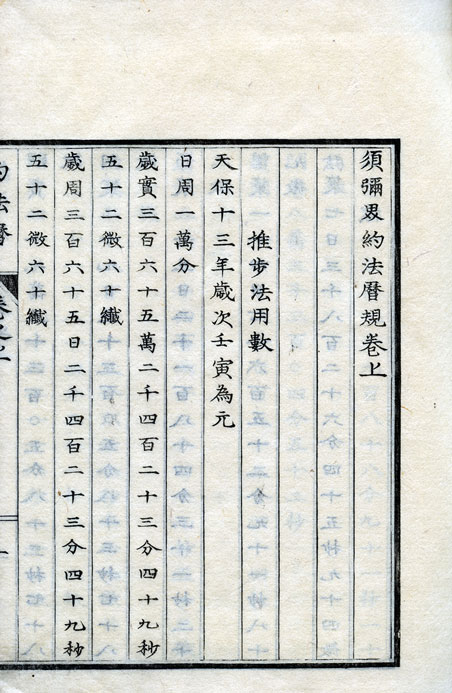 須彌界約法曆規卷上
推步法用數
天保十三年歲次壬寅為元
日周一萬分
歲實三百六十五萬二千四百二十三分四十九秒
五十二微六十纖
歲周三百六十五日二千四百二十三分四十九秒
五十二微六十纖
約法曆
卷之上
一